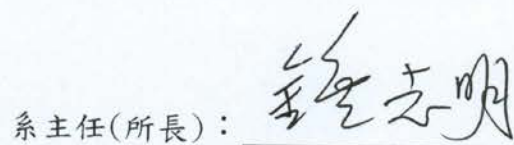 系主任(所長)：鍾志明